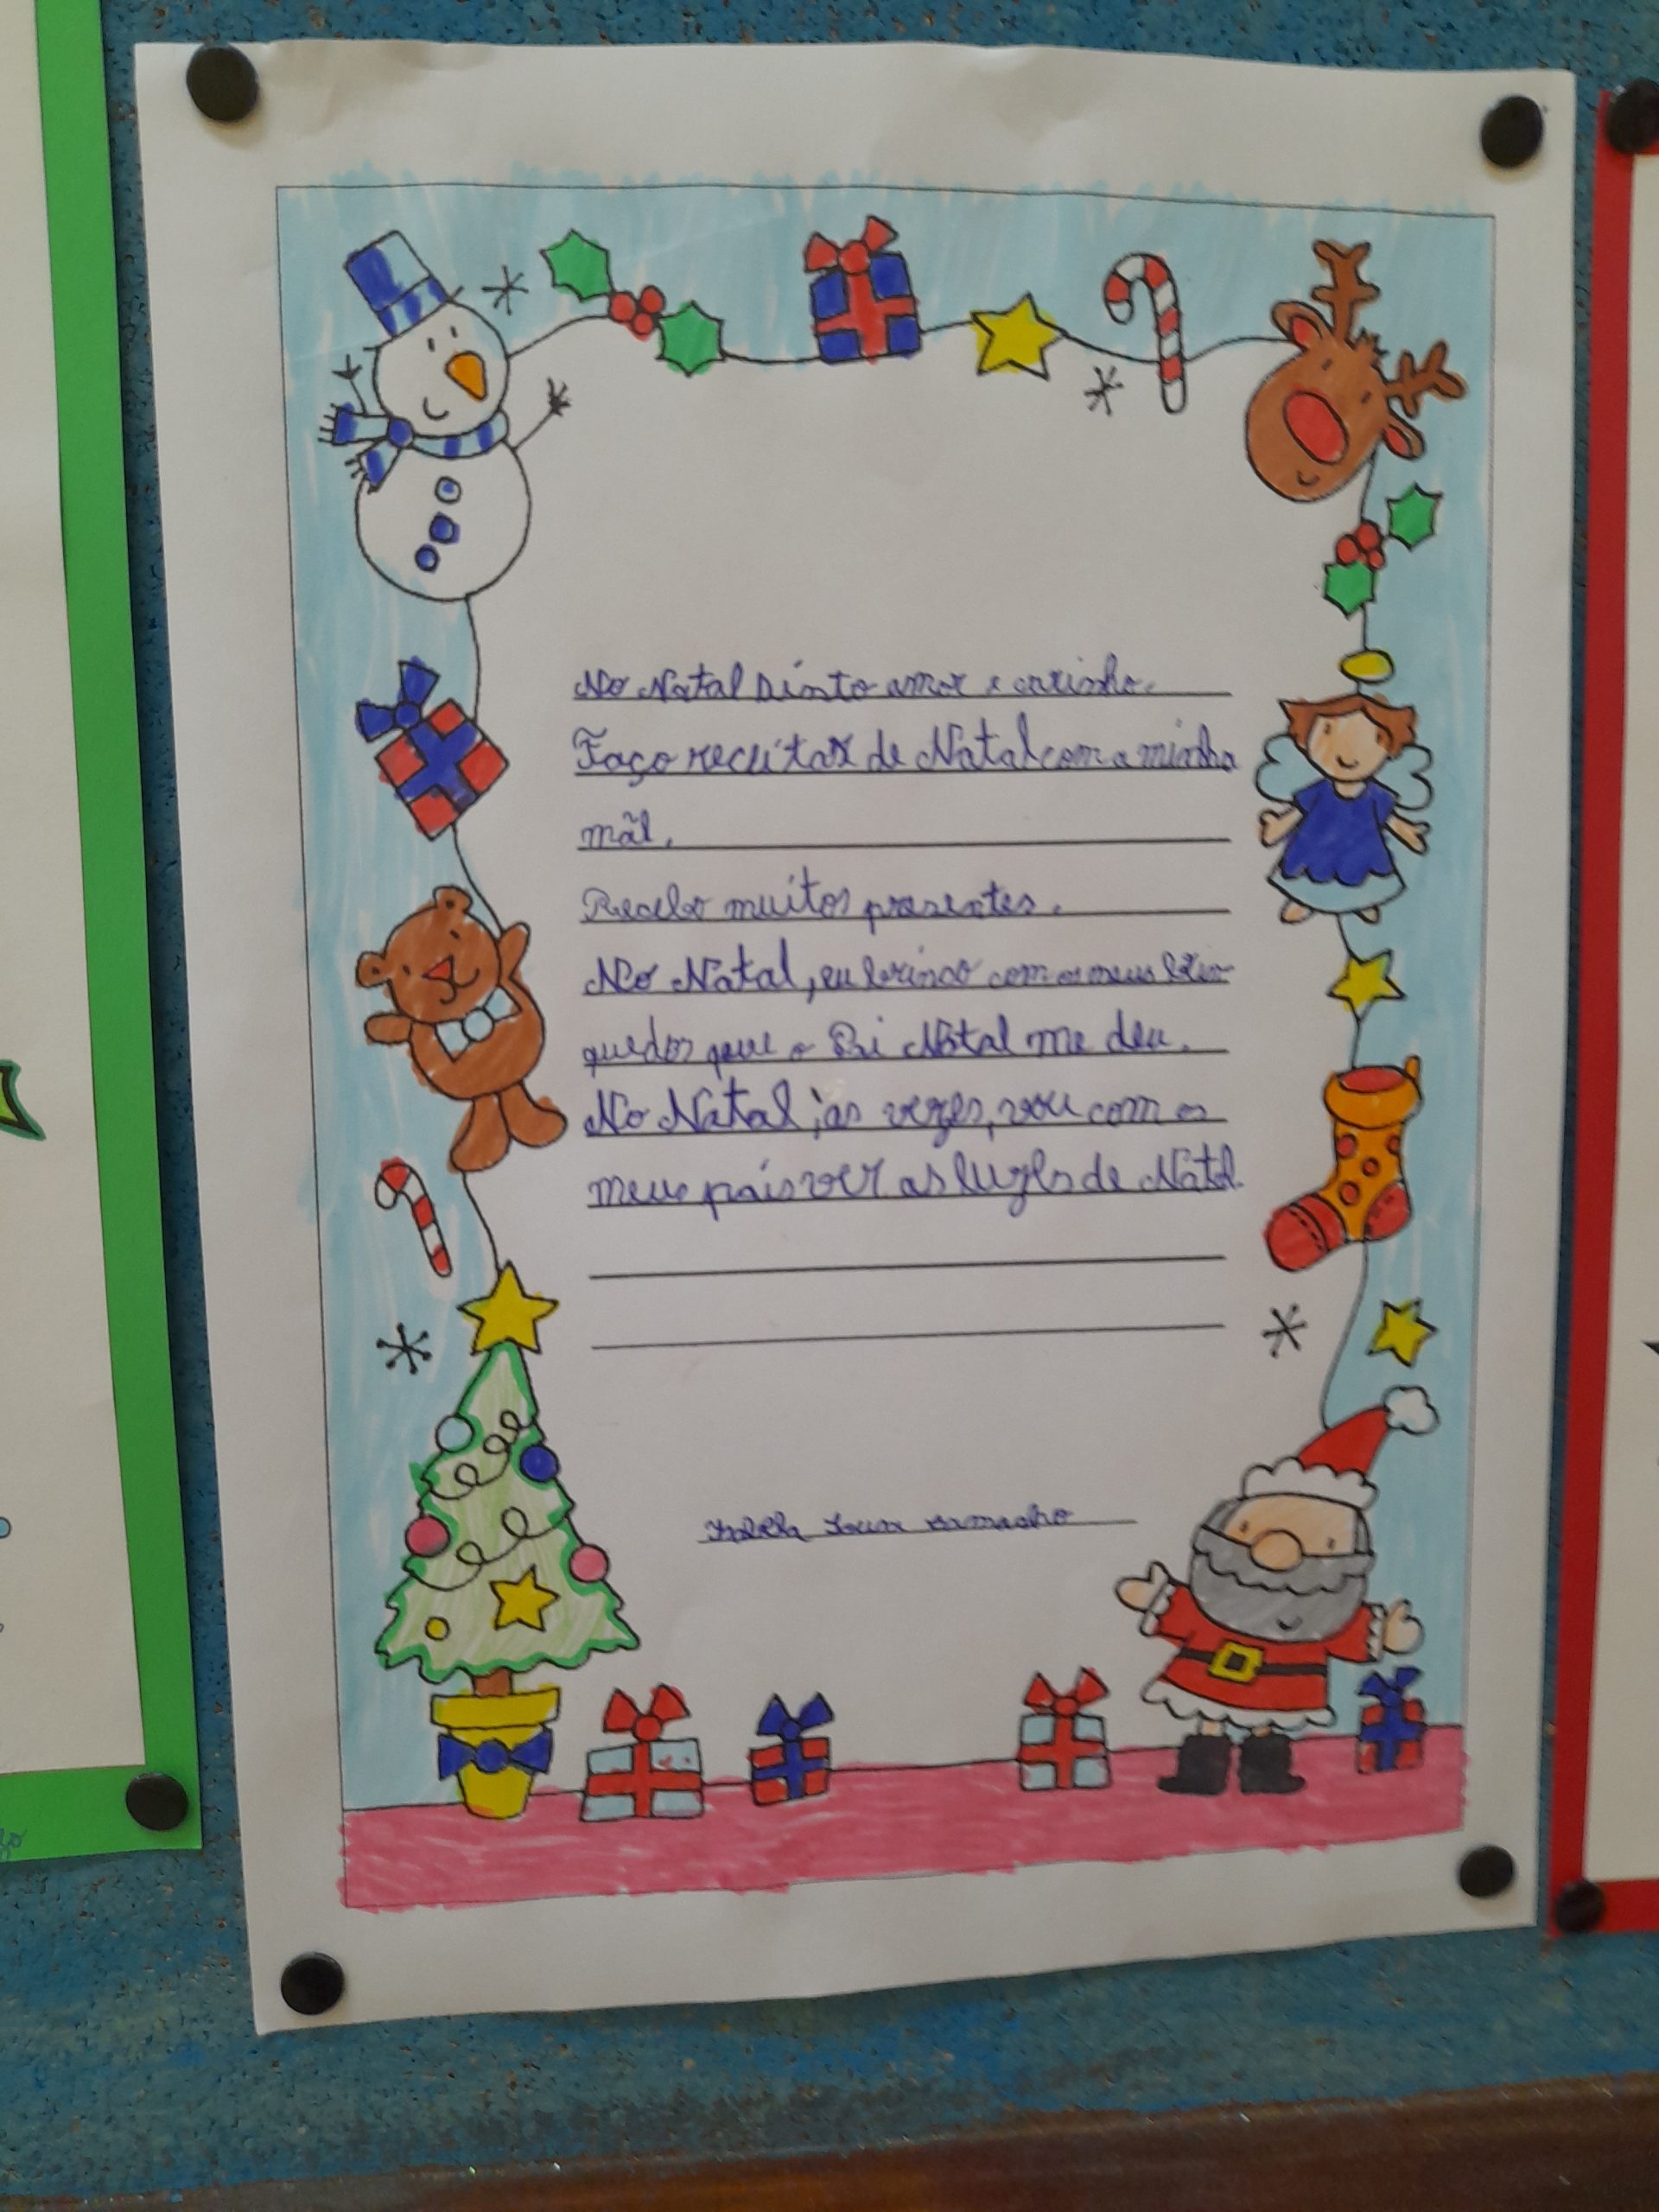 No Natal sinto amor e carinho.
Faço receitas de Natal com a minha
mãe.
Recebo muitos presentes.
No Natal, eu brinco com os meus brin-
quedos que o Pai Natal me deu.
No Natal, às vezes, vou com os
meus pais ver as luzes de Natal.
Camacho